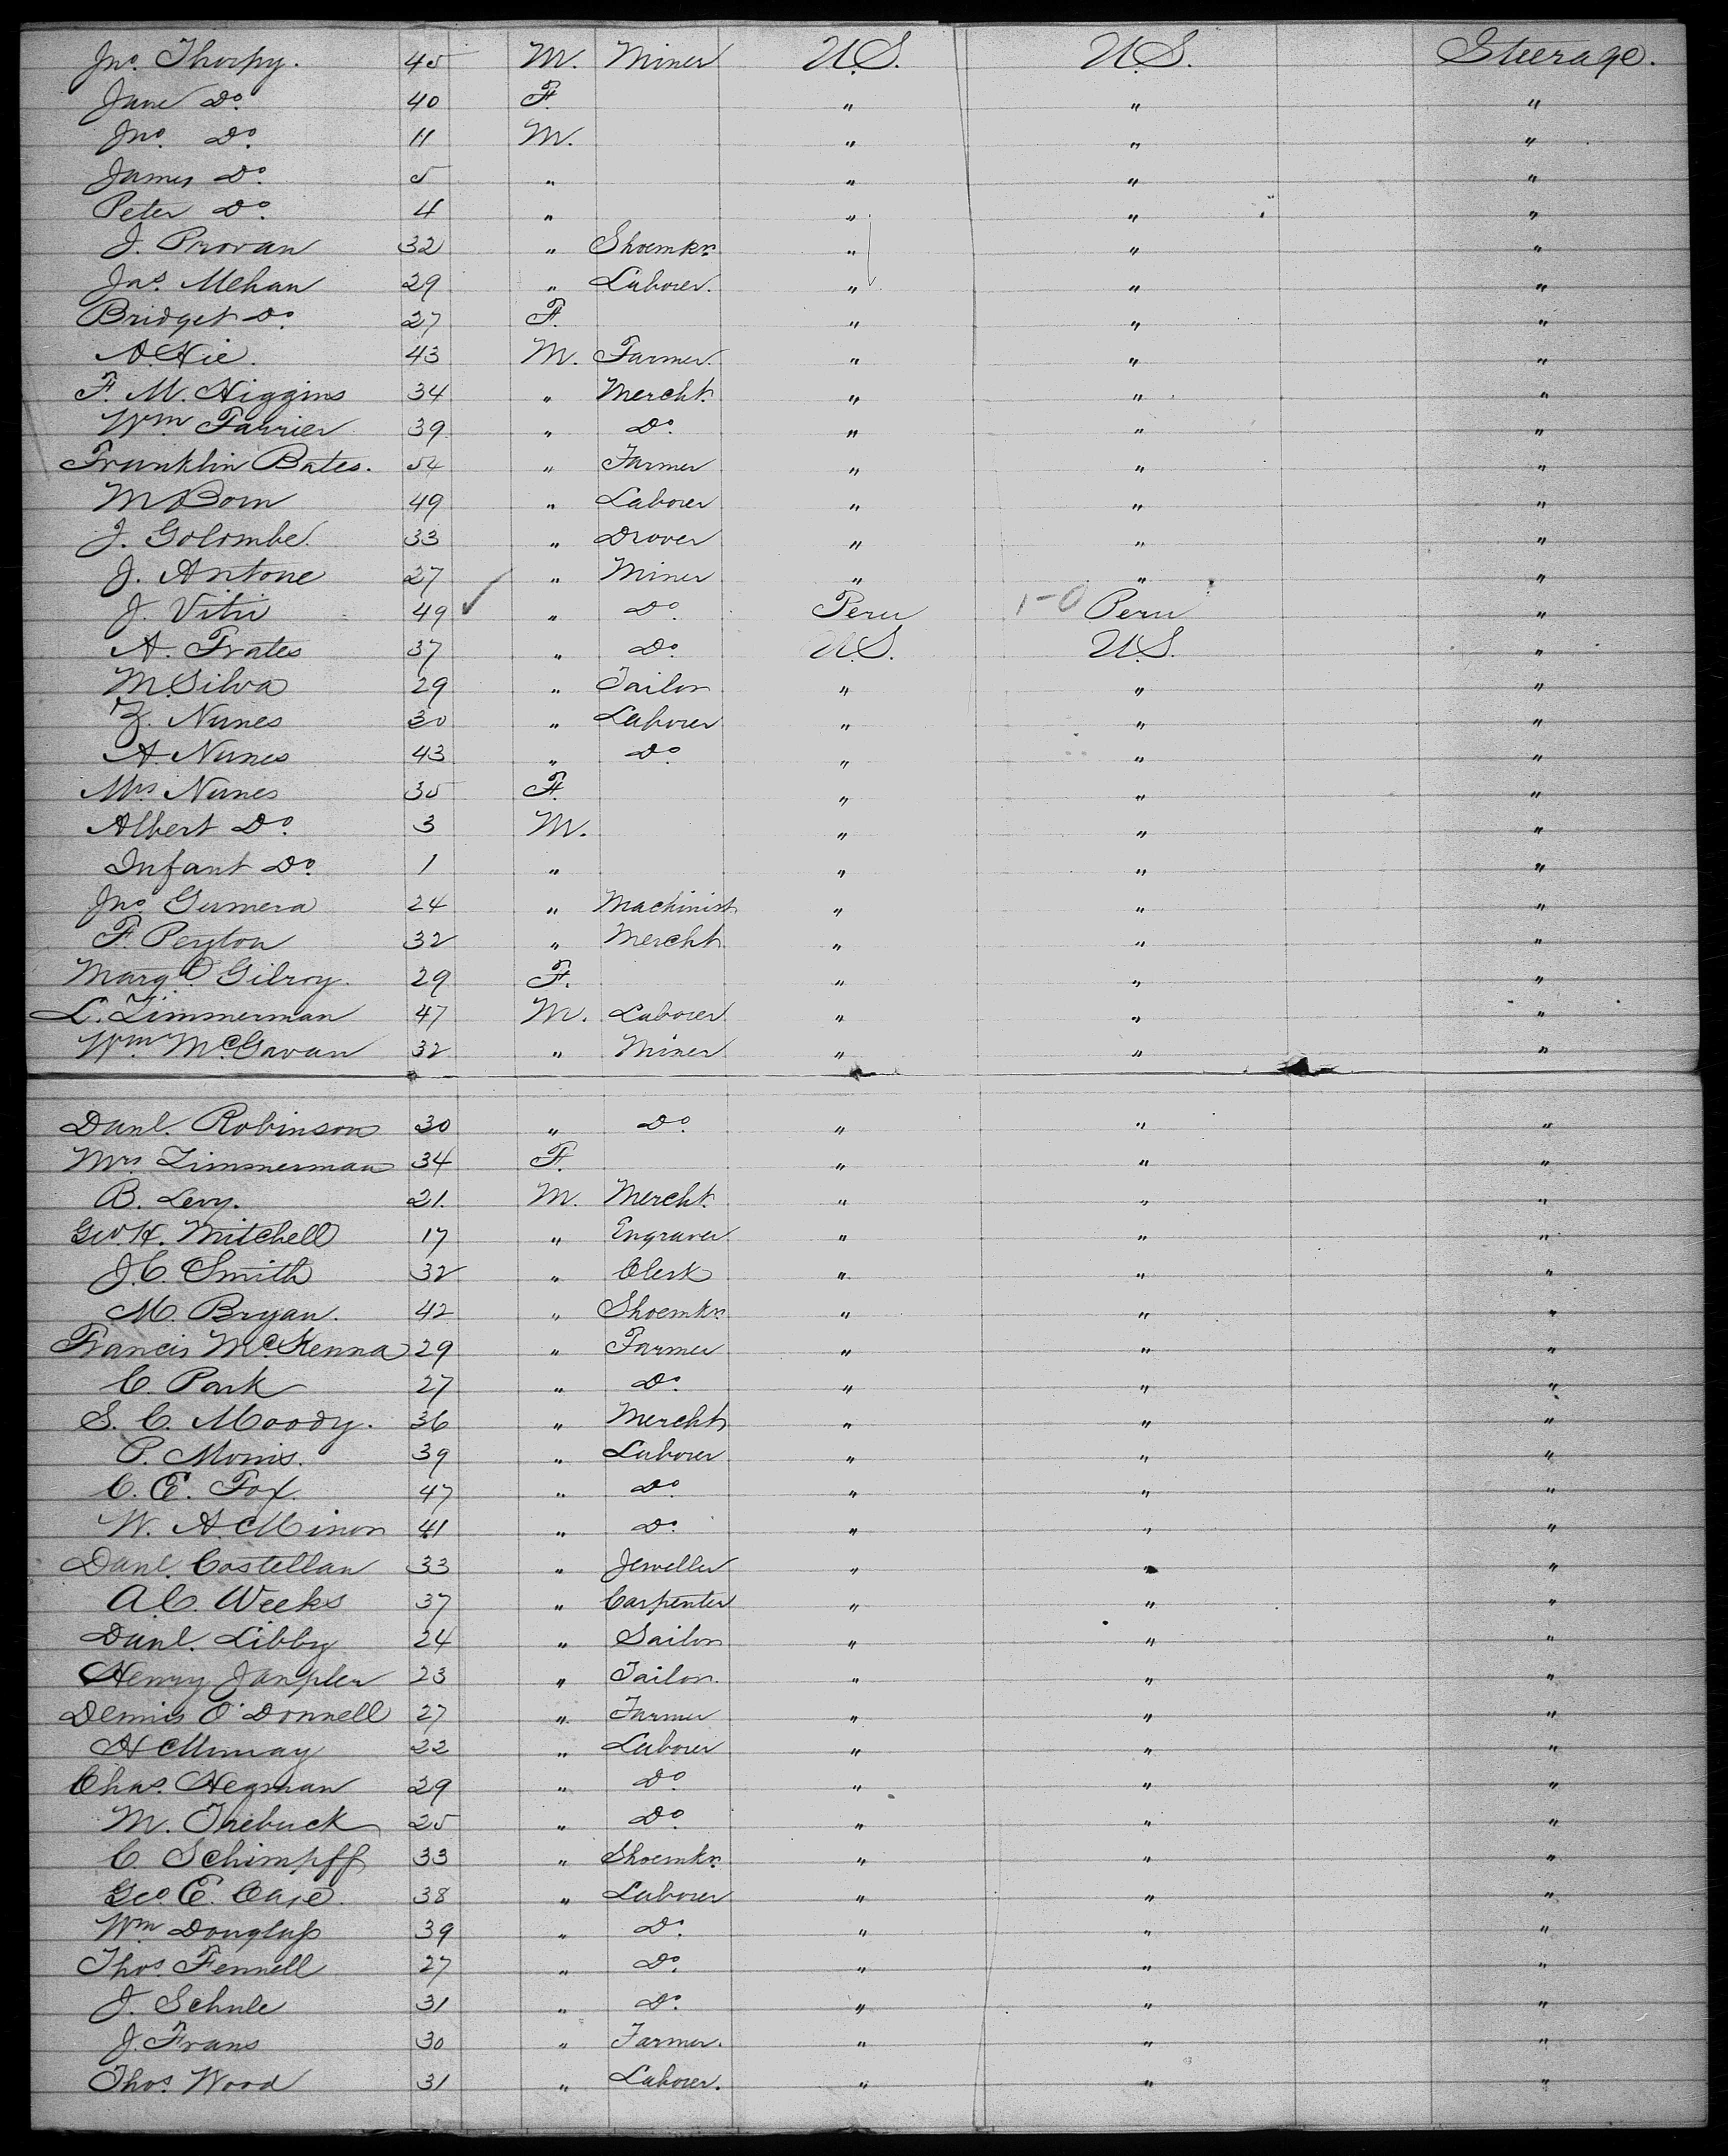 Jno. Thorpy. 45 M. Miner U.S. U.S. Steerage.
Jane Do. 40 F. " " "
Jno. Do. 11 M. " " "
James Do. 5 " " " "
Peter Do. 4 " " " "
J. Provan 32 " Shoemkr. " " "
Jas. Mehan 29 " Laborer. " " "
Bridget Do. 27 F. " " "
43 M. Farmer. " " "
F. M. Higgins 34 " Mercht. " " "
Wm. Farrier 39 " Do. " " "
Franklin Bates. 54 " Farmer " " "
M Born 49 " Laborer " " "
J. Golombe. 33 " Drover " " "
J. Antone 27 " Miner " " "
J. Vitri 49 ✓ " Do. Peru 1-0 Peru "
A. Frates 37 " Do. U.S. U.S. "
M. Silva 29 " Tailor " " "
Z. Nunes 30 " Laborer " " "
A. Nunes 43 " Do. " " "
Mrs Nunes 35 F. " " "
Albert Do. 3 M. " " "
Infant Do. 1 " " " "
Jno. Gumera 24 " Machinist " " "
F. Peyton 32 " Mercht " " "
Margt. Gilroy. 29 F. " " "
L. Zimmerman 47 M. Laborer " " "
Wm. McGavan 32 " Miner " " "
Danl. Robinson 30 " Do. " " "
Mrs. Zimmerman 34 F. " " "
B. Levy. 21. M. Mercht. " " "
Geo. H. Mitchell 17 " Engraver " " "
J. C. Smith 32 " Clerk " " "
M. Bryan. 42 " Shoemkr. " " "
Francis McKenna 29 " Farmer " " "
C. Park 27 " Do. " " "
S. C. Moody. 36 " Mercht " " "
P. Morris. 39 " Laborer " " "
C. E. Fox. 47 " Do. " " "
W. A. Minor 41 " Do. " " "
Danl. Costellan 33 " Jeweller " " "
A. C. Weeks 37 " Carpenter " " "
Danl. Libby 24 " Sailor " " "
Henry 23 " Tailor. " " "
Dennis O'Donnell 27 " Farmer " " "
A Murray 22 " Laborer " " "
Chas. Hegman 29 " Do. " " "
M. Trebuck 25 " Do. " " "
C. Schimpff 33 " Shoemkr. " " "
Geo. E. Case. 38 " Laborer " " "
Wm Douglass 39 " Do. " " "
Thos. Fennell 27 " Do. " " "
J. Schule 31 " Do. " " "
J. Frans 30 " Farmer. " " "
Thos. Wood 31 " Laborer. " " "